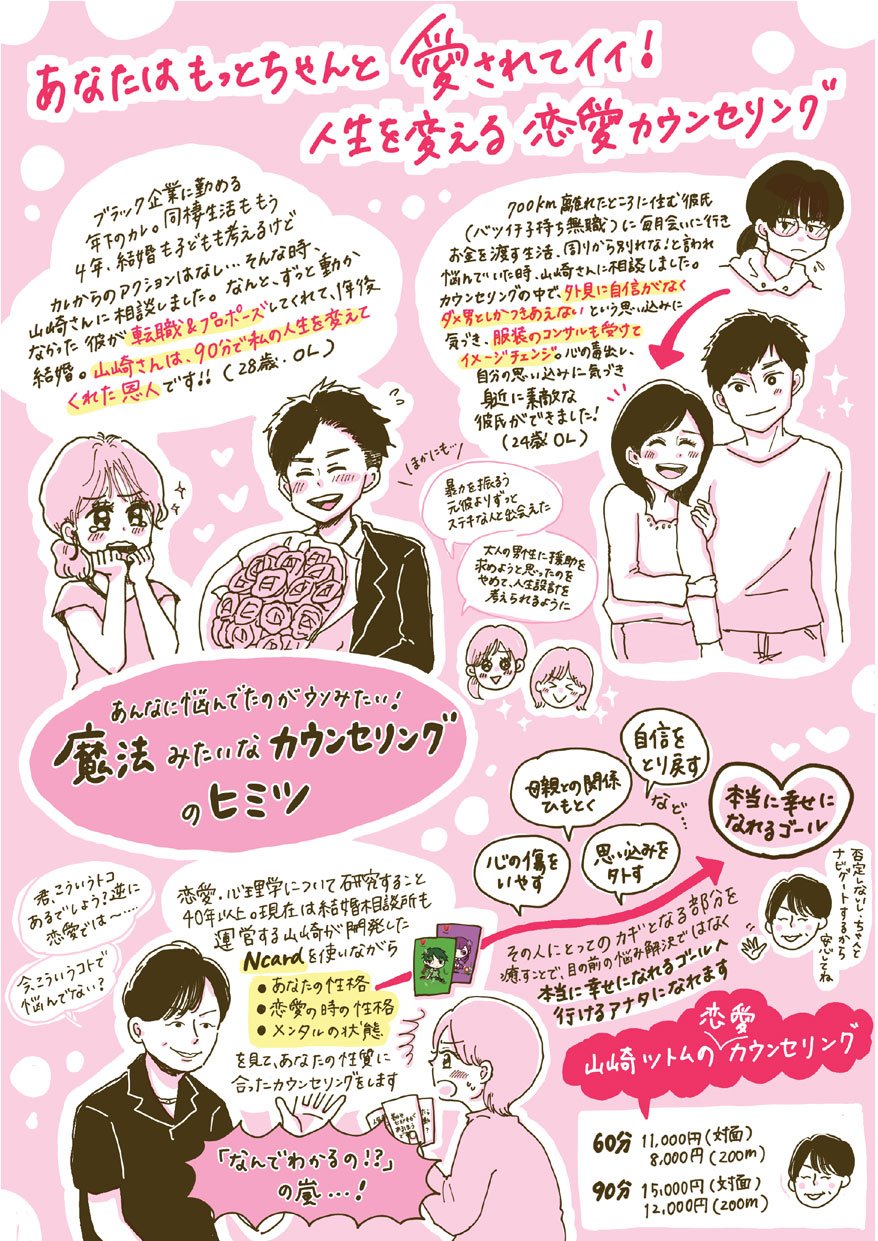 あなたはもっとちゃんと愛されてイイ!
人生を変える恋愛カウンセリング
ブラック企業に勤める
年下のカレ。同棲生活ももう
4年、結婚も子どもも考えるけど
カレからのアクションはなし…そんな時、
山崎さんに相談しました。なんと、ずっと動か
なかった彼が転職&プロポーズしてくれて、1年後
結婚。山崎さんは、90分で私の人生を変えて
くれた恩人です!!(28歳・OL)
700km離れたところに住む彼氏
(バツイチ子持ち無職)に毎月会いに行き
お金を渡す生活。周りから別れな!と言われ
悩んでいた時、山崎さんに相談しました。
カウンセリングの中で、外見に自信がなく
ダメ男としかつきあえないという思い込みに
気づき、服装のコンサルも受けて
イメージチェンジ。心の毒出し、
自分の思い込みに気づき
身近に素敵な
彼氏ができました!
(24歳OL)
ほかにも…
暴力を振るう
元彼よりずっと
ステキな人と出会えた
大人の男性に援助を
求めようと思ったのを
やめて、人生設計を
考えられるように
あんなに悩んでたのがウソみたい!
魔法みたいなカウンセリング
のヒミツ
自信を
とり戻す
母親との関係
ひもとく
など…
心の傷を
いやす
思い込みを
外す
本当に幸せに
なれるゴール
否定しないし、ちゃんと
ナビゲートするから
安心してね
君、こういうトコ
あるでしょう?逆に
恋愛では〜……
今、こういうコトで
悩んでない?
恋愛・心理学について研究すること
40年以上。現在は結婚相談所も
運営する山崎が開発した
Ncardを使いながら
●あなたの性格
●恋愛の時の性格
●メンタルの状態
を見て、あなたの性質に
合ったカウンセリングをします
その人にとってのカギとなる部分を
癒すことで、目の前の悩み解決ではなく
本当に幸せになれるゴールへ
行けるアナタになれます
「なんでわかるの!?」
の嵐…!
山崎ツトムの恋愛カウンセリング
60分 11,000円(対面)
8,000円(zoom)
90分 15,000円(対面)
12,000円(zoom)